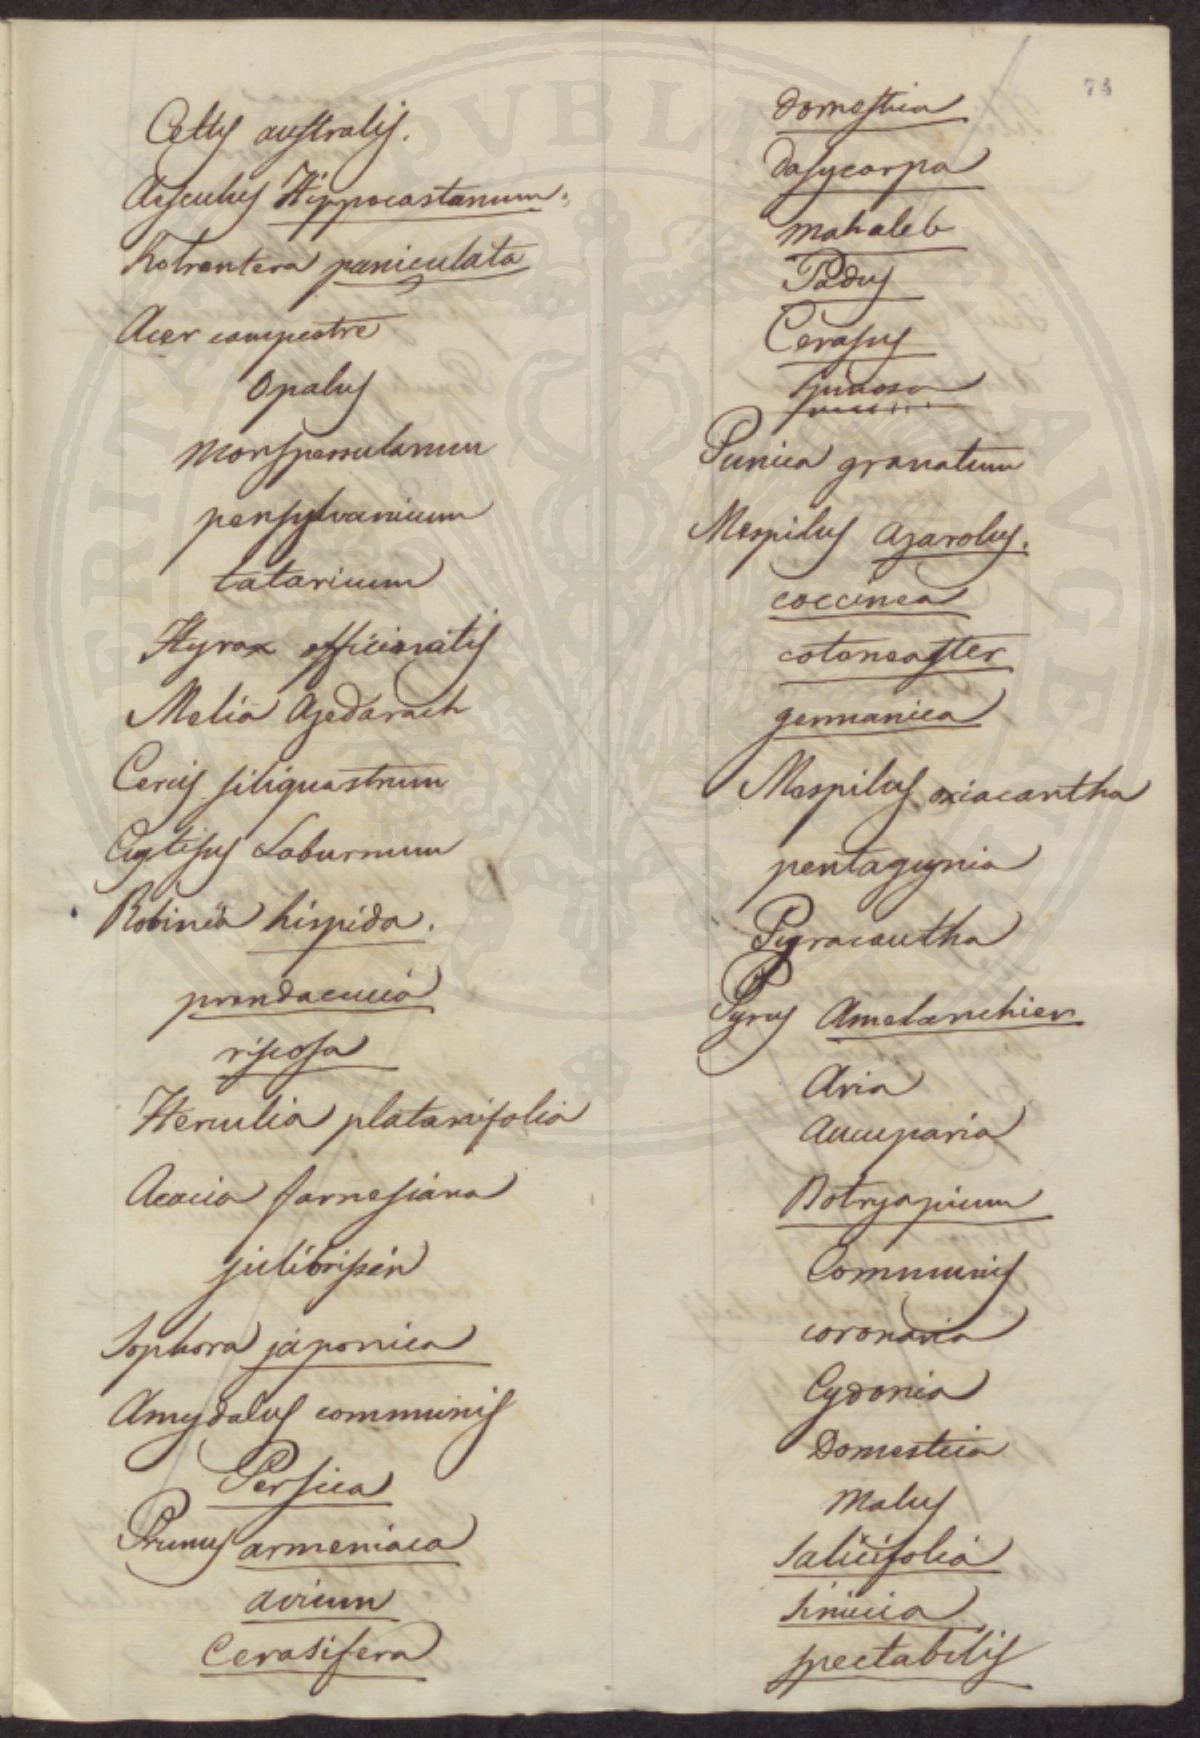 73
Celtis australis.
Aesculus Hippocastanum.
Kolrentera paniculata
Acer campestre
Opalus
Monspessulanum
pensylvanicum
tataricum
Styrax officinalis
Melia Azedarach
Cercis siliquastrum
Cytisus Laburnum
Robinia hispida.
pseudacacia
viscosa
Sterculia platanifolia
Acacia farnesiana
julibrissin
Sophora japonica
Amygdalus communis
Persica
Prunus armeniaca
avium
Cerasifera
domestica
dasycarpa
mahaleb
Padus
Cerasus
spinosa
Punica granatum
Mespilus azarolus.
coccinea
cotoneaster
germanica
Mespilus oxiacantha
pentagynia
Pyracantha
Pyrus Amelanchier
Aria
Aucuparia
Botryapium
Communis
coronaria
Cydonia
Domestica
Malus
salicifolia
sinica
spectabilis